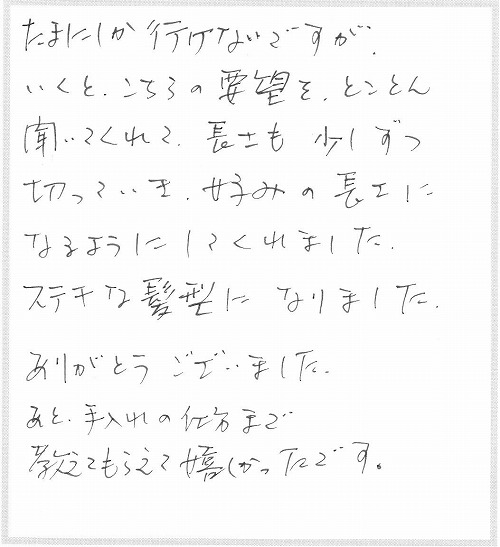 たまにしか行けないですが、
いくと、こちらの要望を、とことん
聞いてくれて、長さも少しずつ
切っていき、好みの長さに
なるようにしてくれました。
ステキな髪型になりました。
ありがとうございました。
あと、手入れの仕方まで
教えてもらえて嬉しかったです。